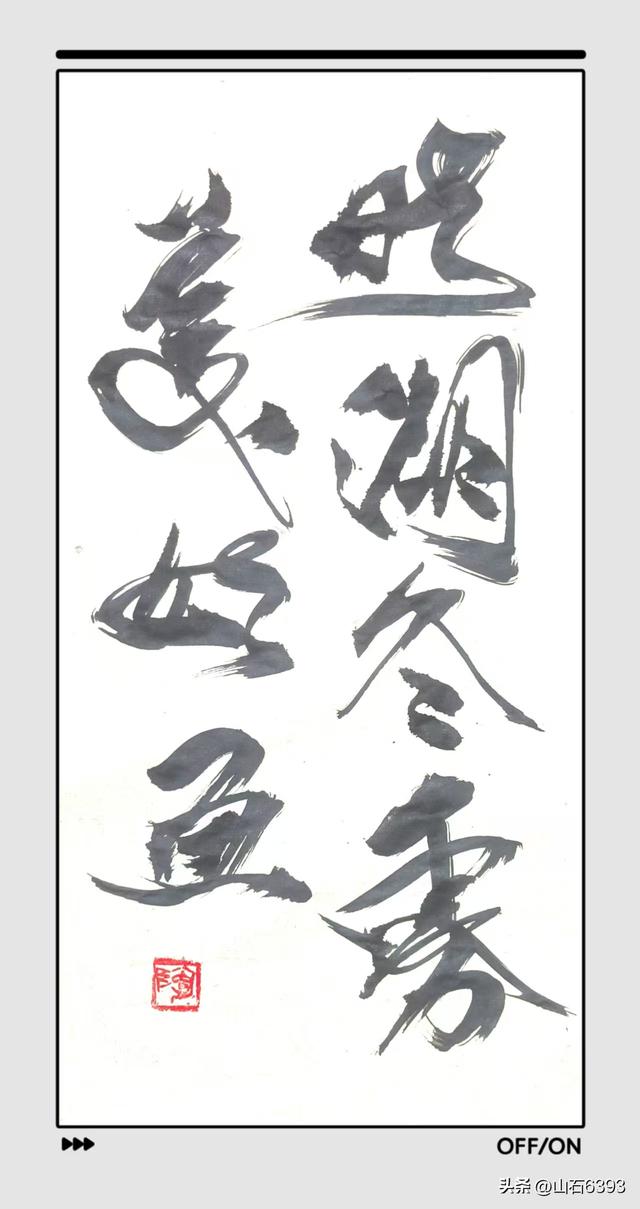 照湖冬雾
美如画
陶
OFF/ON
头条 @山石6393